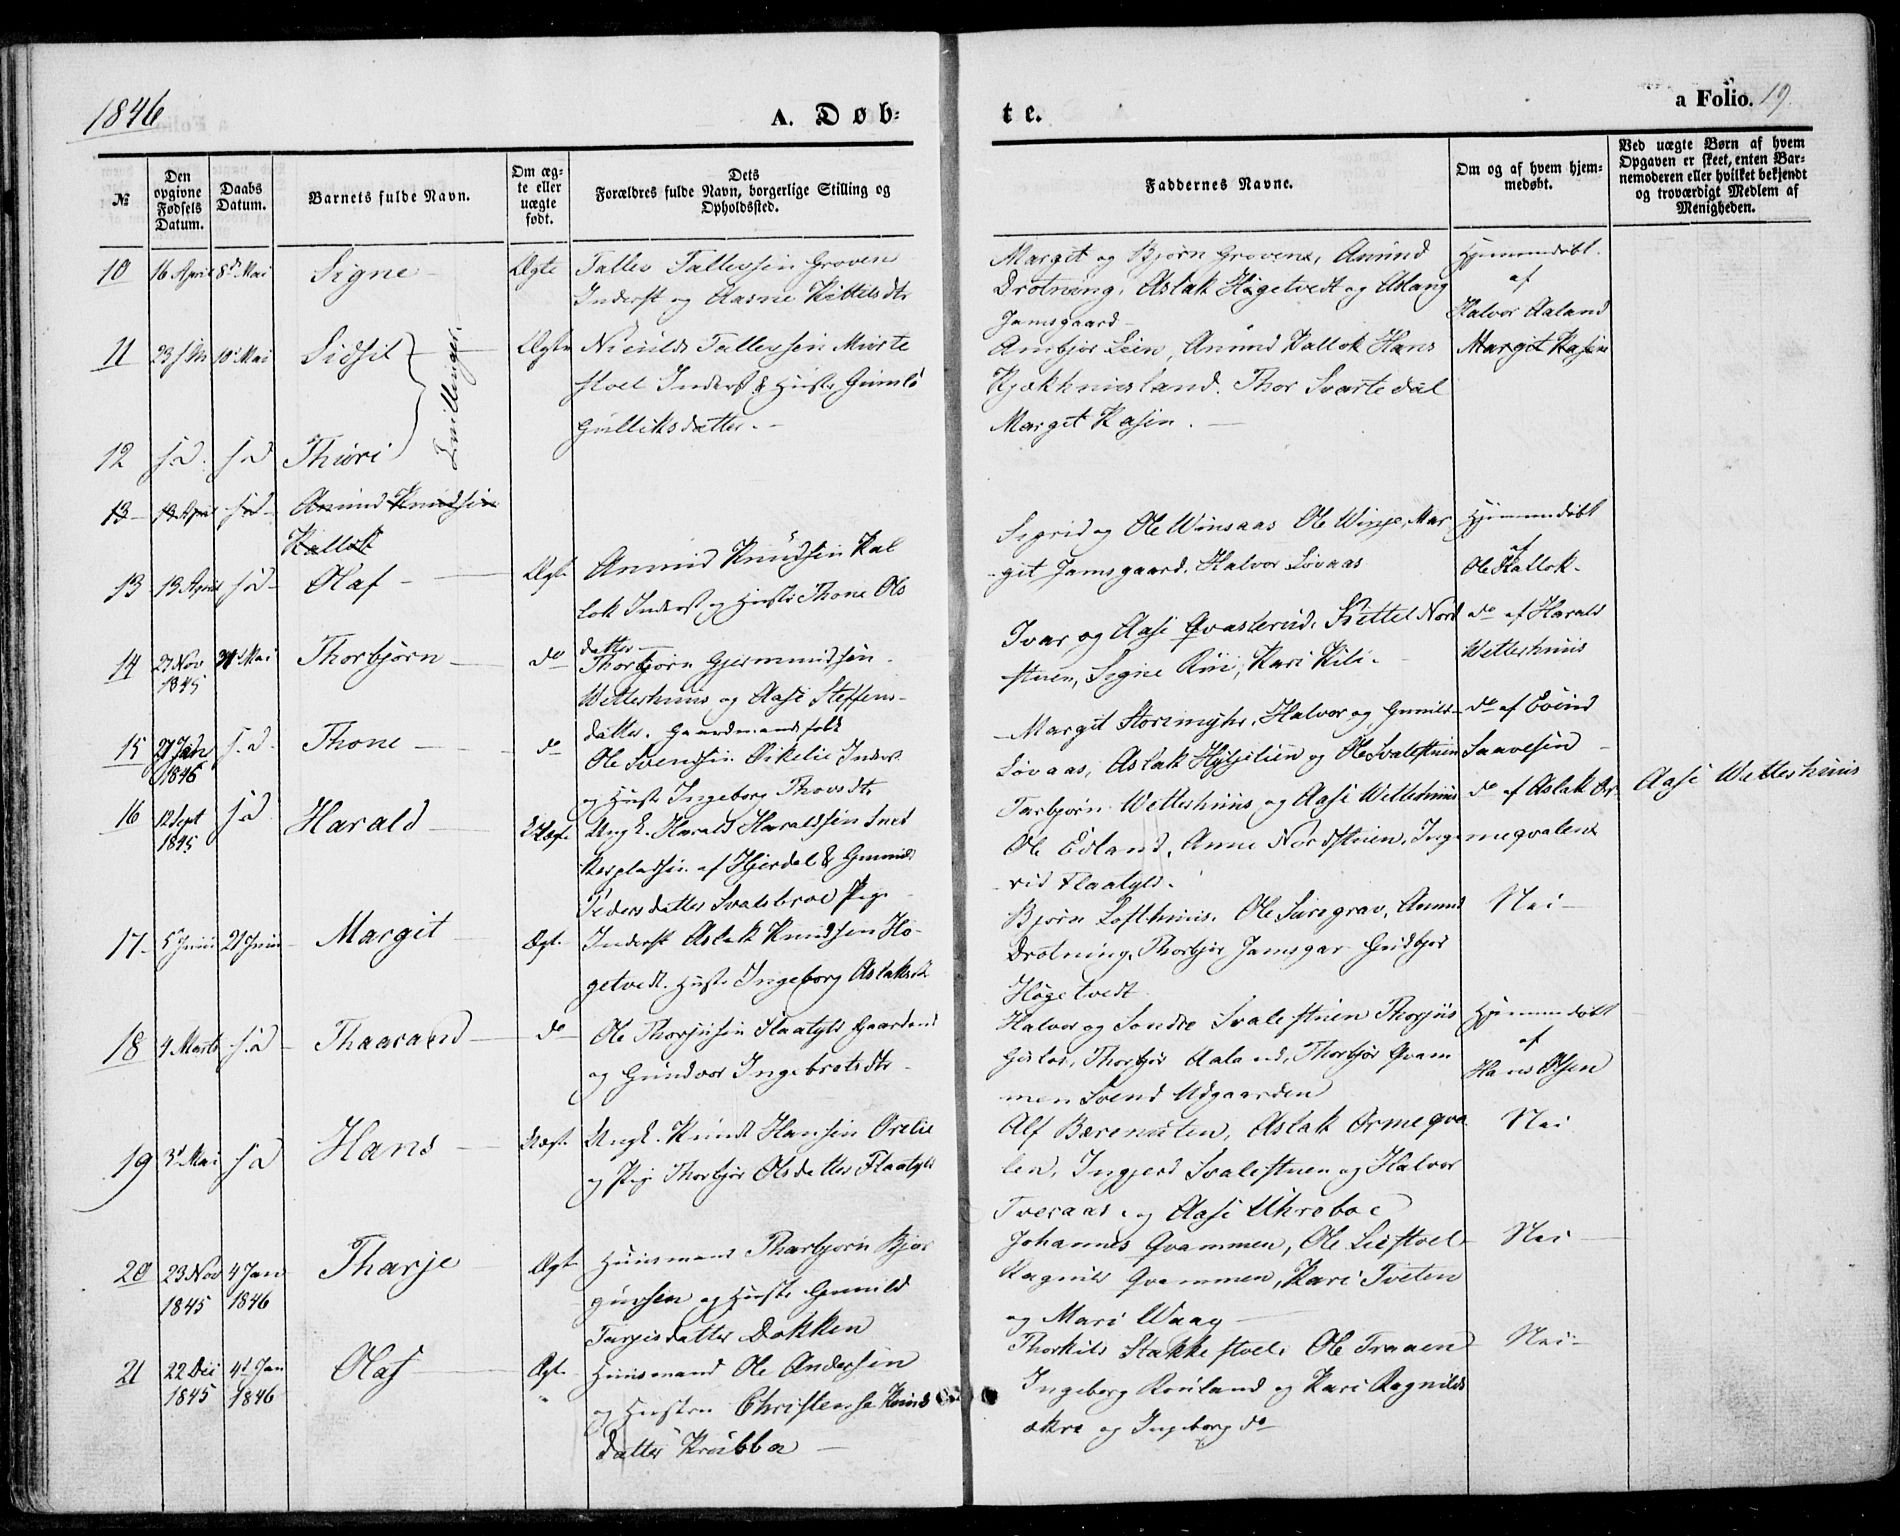 1846
A. Døb-
te.
a Folio. 19.
№
Den opgivne Fødsels Datum.
Daabs Datum.
Barnets fulde Navn.
Om ægte eller uægte født.
Dets Forældres fulde Navn, borgerlige Stilling og Opholdssted.
Faddernes Navne.
Om og af hvem hjemmedøbt.
Ved uægte Børn af hvem Opgaven er skeet, enten Barnemoderen eller hvilket bekjendt og troværdigt Medlem af Menigheden.
10 16 April 8d Mai Signe Ægte Tallev Tallevsen Groven
Inderst og Aasne Kittilsdtr
Marget og Bjørn Grovene, Amund
Drotning, Aslak Høgetvedt og Aslaug
Jamsgaard
Hjemmedøbt
af
Halvor Aaland
11 10 Mai Sidsil Ægte Niculds Tallevsen Miørte
støel Inderst & Hustr Gunild
Gulliksdatter.
Tvillinger.
Ambjør Lien, Amund Kallok Hans
Kjækhuusland. Thor Svartedal
Marget Kasin.
Margit Kasin
12 sd. sd Thuri
13 13 April sd Amund Knudsen
Kallok
13 13 April sd Olaf Ægte Amund Knudsen Kal
lok Inderst og Hustr Thone Ols
datter
Sigrid og Ole Winsaas Ole Winje, Mar
get Jamsgaard, Halvor Løvaas
Hjemmedøbt
af
Ole Kallok
14 27 Nov 1845 31 Mai Thorbjørn do Thorbjørn Gjermundsøn
Wetleshuus og Aase Steffens
datter. Gaardmandsfolk
Ivar og Aase Qvasterud, Kittel Nord
stuen, Signe Rui, Kari Kili
do af Harald
Wetleshuus
15 27 Jan 1846 s.d. Thone do Ole Svendsen Inderst
og Hustr Ingeborg Thovsdtr
Margit Storemyhr, Halvor og Gunild
Løvaas, Aslak og Ole Svalestuen
do af Eivind
Saavesen
16 12 Sept 1845 sd Harald Uægt. Ungk. Harald Haraldsen
af Hjerdal & Gunild
Pedersdatter Pige
Tarbjørn Wetleshuus, og Aase Wetleshuus
Ole Edland, Anne Nordstuen, Inge
rid Flaatyld.
do af Aslak Or
meqvalen
Aase Wetleshuus
17 5 Juni 21 Juni Margit Ægt. Inderst Aslak Knudsen Hø
getvedt. Hustr Ingeborg Aslaksd
Bjørn Lofthuus, Ole Suregrav, Amund
Drotning, Thorbjør Jamsgar
Høgetvedt
Nei
18 4 Marts s.d Thaarand do Ole Thorjusen Flaatyld Gaardmd
og Gundvor Ingebretsdtr
Halvor og Sondre Svalestuen Thorjus
Thorbjør Aaland, Thorbjør Qvam
men Svend Udgaarden
Hjemmedøbt
af
Hans Olsen
19 3d Mai sd Hans Uægt Ungk. Knudt Hansen
og Pig. Thorbjør Olsdatter Flaatyld
Alf Bærenuten, Aslak Ormeqva
len, Ingjerd Svalestuen og Halvor
Tveraas, og Aase Uhreboe
Nei
20 23 Nov 1845 4 Jan 1846 Tharje Ægt Huusmand Thorbjørn Bjør
gursen og Hustr Gunild
Tarjeisdatter Dokken
Johannes Qvammen, Ole
Ragnild Qvammen, Kari Tveten
og Mari Waag
Nei
21 22 Dec 1845 4d Jan 1846 Olaf Ægt. Huusmand Ole Andersen
og Hustru Christense Knuds
datter Krubba
Thorkild Stakkestoel, Ole Traaen
Ingeborg Rouland og Kari Ragnilds
økra og Ingeborg do
Nei